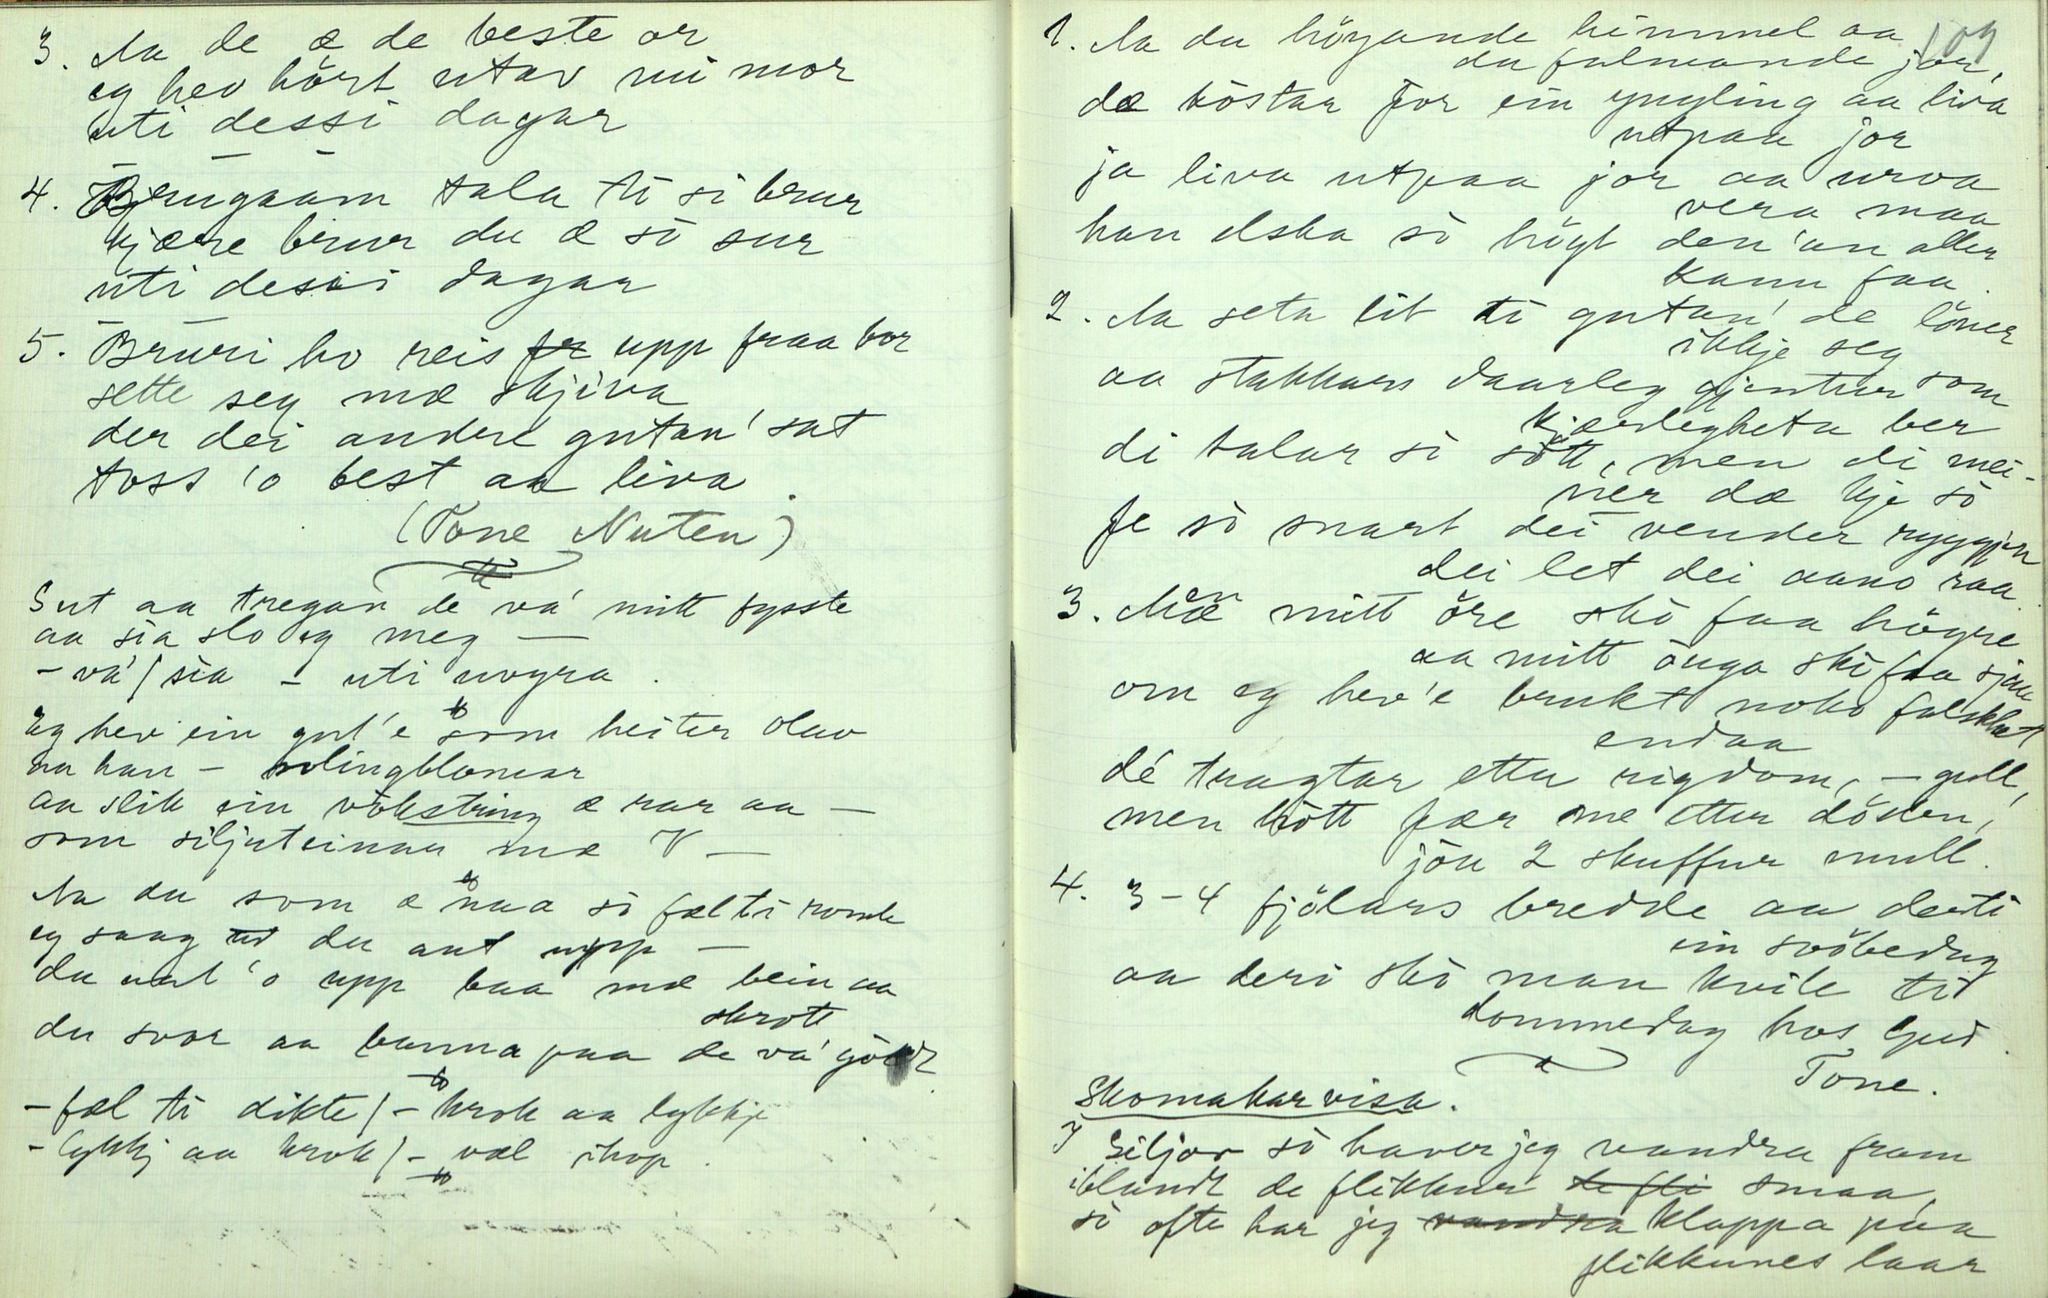 3. Aa de æ de beste or
eg hev hört utav mi mor
uti dessi dagar
4. Brugaam tala ti si brur
kjære brur du æ so sur
uti dessi dagar
5. Bruri ho reis fr upp fraa bor
sette seg mæ skjiva
der dei andre gutan' sat
toss 'o best aa liva.
(Tone Nuten)
Sut aa tregar de va' mitt fysste
aa sia slo eg meg —
- va' / sia - uti uvyra.
Eg hev ein gut'e som heiter Olav
aa han - lingblomar
aa slik ein vökstring æ rar aa —
som siljuteinan mæ V —
Aa du som æ naa so fælti romle
eg saag du aut upp —
du aut 'o upp baa mæ bein aa
skrott
du svor aa banna paa de va' gött
- fæl ti dikte / - krok aa lykkje
- lykkj aa krok / - væl ihop.
109
1. Aa du högande himmel aa
du falmande jor,
dæ köstar for ein yngling aa liva
utpaa jor
ja liva utpaa jor aa urva
vera maa
han elska so högt den 'an aller
kann faa.
2. Aa seta lit ti gutan' de löner
ikkje seg
aa stakkars daarleg gjentur som
kjærlegheta ber
di talar so sött, men di mei-
ner dæ kje so
Fe so snart dei vender ryggjen
dei let dei aano raa.
3. Men mitt öre sko faa högre
aa mitt öuga sko faa sjaa
om eg hev'e brukt noko falskhet
endaa
de' tragtar etter rigdom, - gull,
men kött fær me etter döden,
jön 2 skuffur mull.
4. 3-4 fjölars bredde aa derti
ein svöbedug
aa deri sko man kvile til
dommedag hos Gud.
Tone.
Skomakarvisa.
I Siljor so haver jeg vandra fram
iblandt de flikkur de fli smaa,
so ofte har jeg vandra klappa paa
flikkunes laar